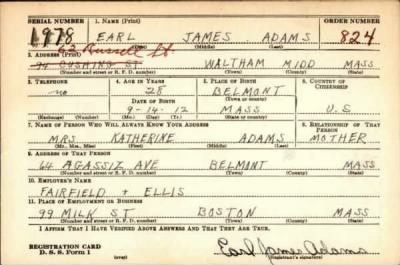 SERIAL NUMBER 1. Name (Print) ORDER NUMBER
1978 EARL JAMES ADAMS 824
(First) (Middle) (Last)
62 Russell St.
2. Address (Print)
94 CUSHING ST WALTHAM MIDD MASS
(Number and street or R. F. D. number) (Town) (County) (State)
3. Telephone 4. Age in Years 5. Place of Birth 6. Country of Citizenship
no 28 BELMONT
Date of Birth (Town or county)
9-14-12 MASS U.S
(Exchange) (Number) (Mo.) (Day) (Yr.) (State or country)
7. Name of Person Who Will Always Know Your Address 8. Relationship of That Person
MRS KATHERINE ADAMS MOTHER
(Mr., Mrs., Miss) (First) (Middle) (Last)
9. Address of That Person
64 AGASSIZ AVE BELMONT MASS
(Number and street or R. F. D. number) (Town) (County) (State)
10. Employer's Name
FAIRFIELD + ELLIS
11. Place of Employment or Business
99 MILK ST BOSTON MASS
(Number and street or R. F. D. number) (Town) (County) (State)
I Affirm That I Have Verified Above Answers and That They Are True.
REGISTRATION CARD
D. S. S. Form 1 (over) Earl James Adams
(Registrant's signature)